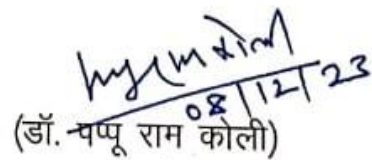 08/12/23
(डॉ. पप्पू राम कोली)